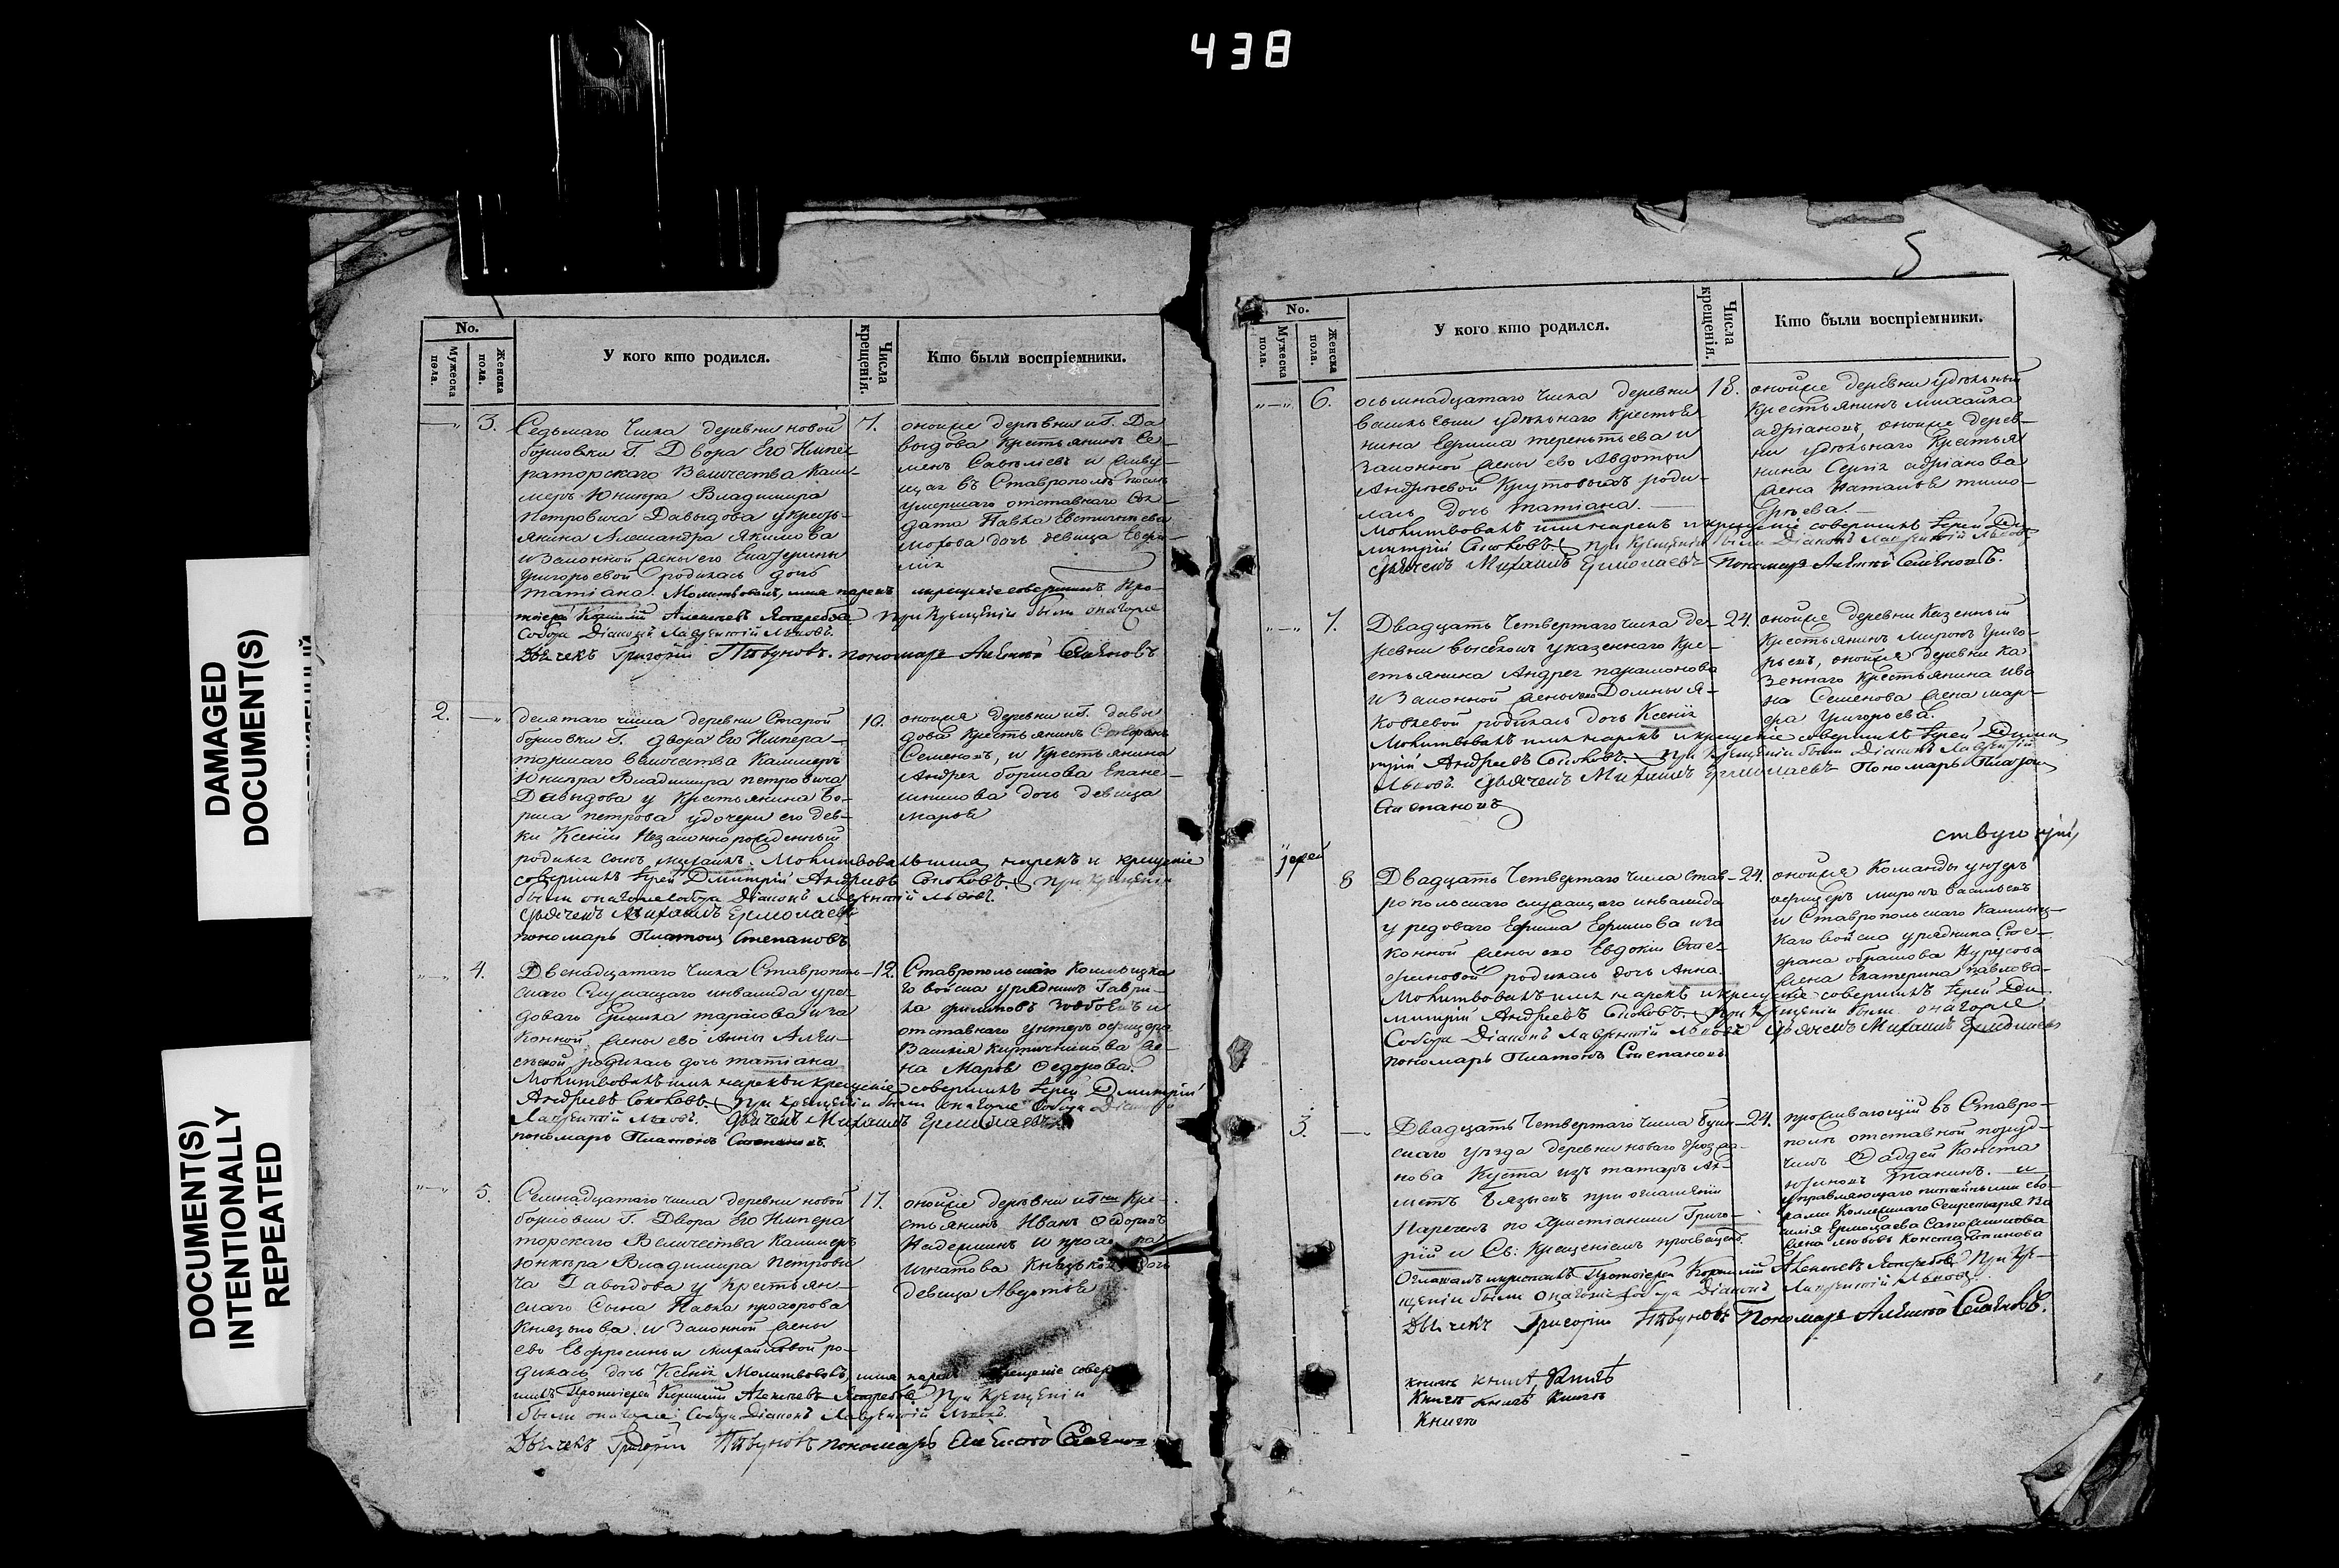 438
DAMAGED
DOCUMENT(S)
DOCUMENT(S)
INTENTIONALLY
REPEATED
No.
Мужеска пола.
Женска пола.
У кого кто родился.
Числа крещенія.
Кто были воспріемники.
3.
Седьмаго числа деревни новой
борисовки Г. Двора Его Импе
раторскаго Величества Кам
меръ Юнкера Владимира
Петровича Давыдова у кресть
янина Александра Якимова
и законной жены его Екатерины
Григорьевой родилась дочь
татіана. Молитвовалъ, имя нарекъ и крещеніе совершилъ Про
тоіерей Алексѣевъ Ястребовъ При Крещеніи были онагоже
Собора Діаконъ Лаврентій Львовъ.
Дьячекъ Григорій Пѣвуновъ. пономарь Алексѣй Семеновъ
7.
оноиже деревни Г. Да
выдова крестьянинъ Се
менъ Савѣліевъ и живу
щаго въ Ставрополѣ послѣ
умершаго отставнаго Сол
дата Павла Евстигнѣева
дочь девица
2.
десятаго числа деревни Старой
борисовки Г. двора Его Импера
торскаго величества Каммеръ
Юнкера Владимира петровича
Давыдова у крестьянина Бо
риса петрова у дочери его дев
ки Ксеніи Незаконнорожденный
родился сынъ михаилъ. Молитвовалъ имя нарекъ и крещеніе
совершилъ Іерей Дмитрій Андреевъ Соколовъ. При крещеніи
были онагоже собора Діаконъ лаврентій львовъ.
Дьячекъ Михаилъ Ермолаевъ
пономарь Платонъ Степановъ
10.
оноиже деревни Г. давы
дова Крестьянинъ
Семеновъ, и Крестьянина
Андрея борисова
дочь девица
марья
4.
Двенадцатаго числа Ставрополь
скаго Служащаго инвалида у ря
доваго тарасова и за
конной жены его Анны Алек
сѣевой родилась дочь татіана
Молитвовалъ имя нарекъ и крещеніе совершилъ Іерей Дмитрій
Андреевъ Соколовъ. При крещеніи были онагоже Собора Діаконъ
Лаврентій львовъ. Дьячекъ Михаилъ Ермолаевъ
пономарь Платонъ Степановъ.
12.
Ставропольскаго Калмыцка
го войска урядникъ Гаври
ла филиповъ и
отставнаго унтеръ офицера
Василія кирпичникова же
на Марья Федорова.
5.
Семнадцатаго числа деревни новой
борисовки Г. Двора Его Импера
торскаго Величества Каммеръ
Юнкера Владимира Петрови
ча Давыдова у Крестьян
скаго Сына Павла прохорова
Князькова и Законной жены
его Евфросиньи михайловой ро
дилась дочь Ксенія Молитвовалъ, имя нарекъ крещеніе совер
шилъ Протоіерей Алексѣевъ Ястребовъ При Крещеніи
были онагоже Собора Діаконъ Лаврентій Львовъ.
Дьячекъ Григорій Пѣвуновъ пономарь Алексѣй Семенов
17.
оноиже деревни Кре
стьянинъ Иванъ Федоровъ
и
игнатова дочь
девица Авдотья
5
No.
Мужеска пола.
Женска пола.
У кого кто родился.
Числа крещенія.
Кто были воспріемники.
6.
осьмнадцатаго числа деревни
васильевки удѣльнаго Крестья
нина Ефима терентьева и
Законной жены ево Авдотьи
Андреевой Крутовыхъ роди
лась дочь татіана.
Молитвовалъ имя нарекъ и крещеніе совершилъ Іерей Ди
митрій Соколовъ. При Крещеніи были Діаконъ Лаврентій Львовъ
Дьячекъ Михаилъ Ермолаевъ Пономарь Алексѣй Семеновъ.
18.
оноиже деревни удѣльный
Крестьянинъ михайла
адріановъ, оноиже дерев
ни удѣльнаго Крестья
нина Сергія адріанова
жена Наталья тимо
фѣева.
7.
Двадцать Четвертаго числа де
ревни у казеннаго Кре
стьянина Андрея парамонова
и Законной жены ево Домны Я
ковлевой родилась дочь Ксенія
Молитвовалъ имя нарекъ и крещеніе совершилъ Іерей Дими
трій Андреевъ Соколовъ. При крещеніи были Діаконъ Лаврентій
Львовъ. Дьячекъ Михаилъ Ермолаевъ Пономарь Платон
Степановъ
24.
оноиже деревни Казенный
Крестьянинъ Миронъ Григо
рьевъ, оноиже деревни Ка
зеннаго Крестьянина ива
на Семенова жена мар
фа Григорьева.
Іерей
8
Двадцать Четвертаго числа Став
ропольскаго служащаго инвалида
у редоваго Ефима Ефимова и за
конной жены его Евдокіи Сте
фановой родилась дочь Анна.
Молитвовалъ имя нарекъ и крещеніе совершилъ Іерей Ди
митрій Андреевъ Соколовъ. При крещеніи были онагоже
Собора Діаконъ Лаврентій Львовъ Дьячекъ Михаилъ Ермолаевъ
пономарь Платонъ Степановъ
24.
оноиже Команды унтеръ
офицеръ миронъ васильевъ
и Ставропольскаго Калмыц
каго войска урядника Сте
фана
жена Екатерина павлова
3.
Двадцать Четвертаго числа Буин
скаго уѣзда деревни новаго
из татаръ Ах
метъ при оглашеніи
Нареченъ по Христіански Григо
рій и Св: Крещеніемъ просвещенъ.
Оглашалъ и крестилъ Протоіерей Алексѣевъ Ястребовъ При Кре
щеніи были онагоже Собора Діаконъ Лаврентій Львовъ
Дьячекъ Григорій Пѣвуновъ Пономарь Алексѣй Семеновъ.
24.
проживающій въ Ставро
полѣ отставной поруд
чикъ Фаддей Конста
и
управляющаго питейными сбо
рами Коллежскаго Секретаря Ва
силія Ермолаева
жена любовь Константинова
Книгъ
Книгъ Книгъ Книгъ
Книгъ